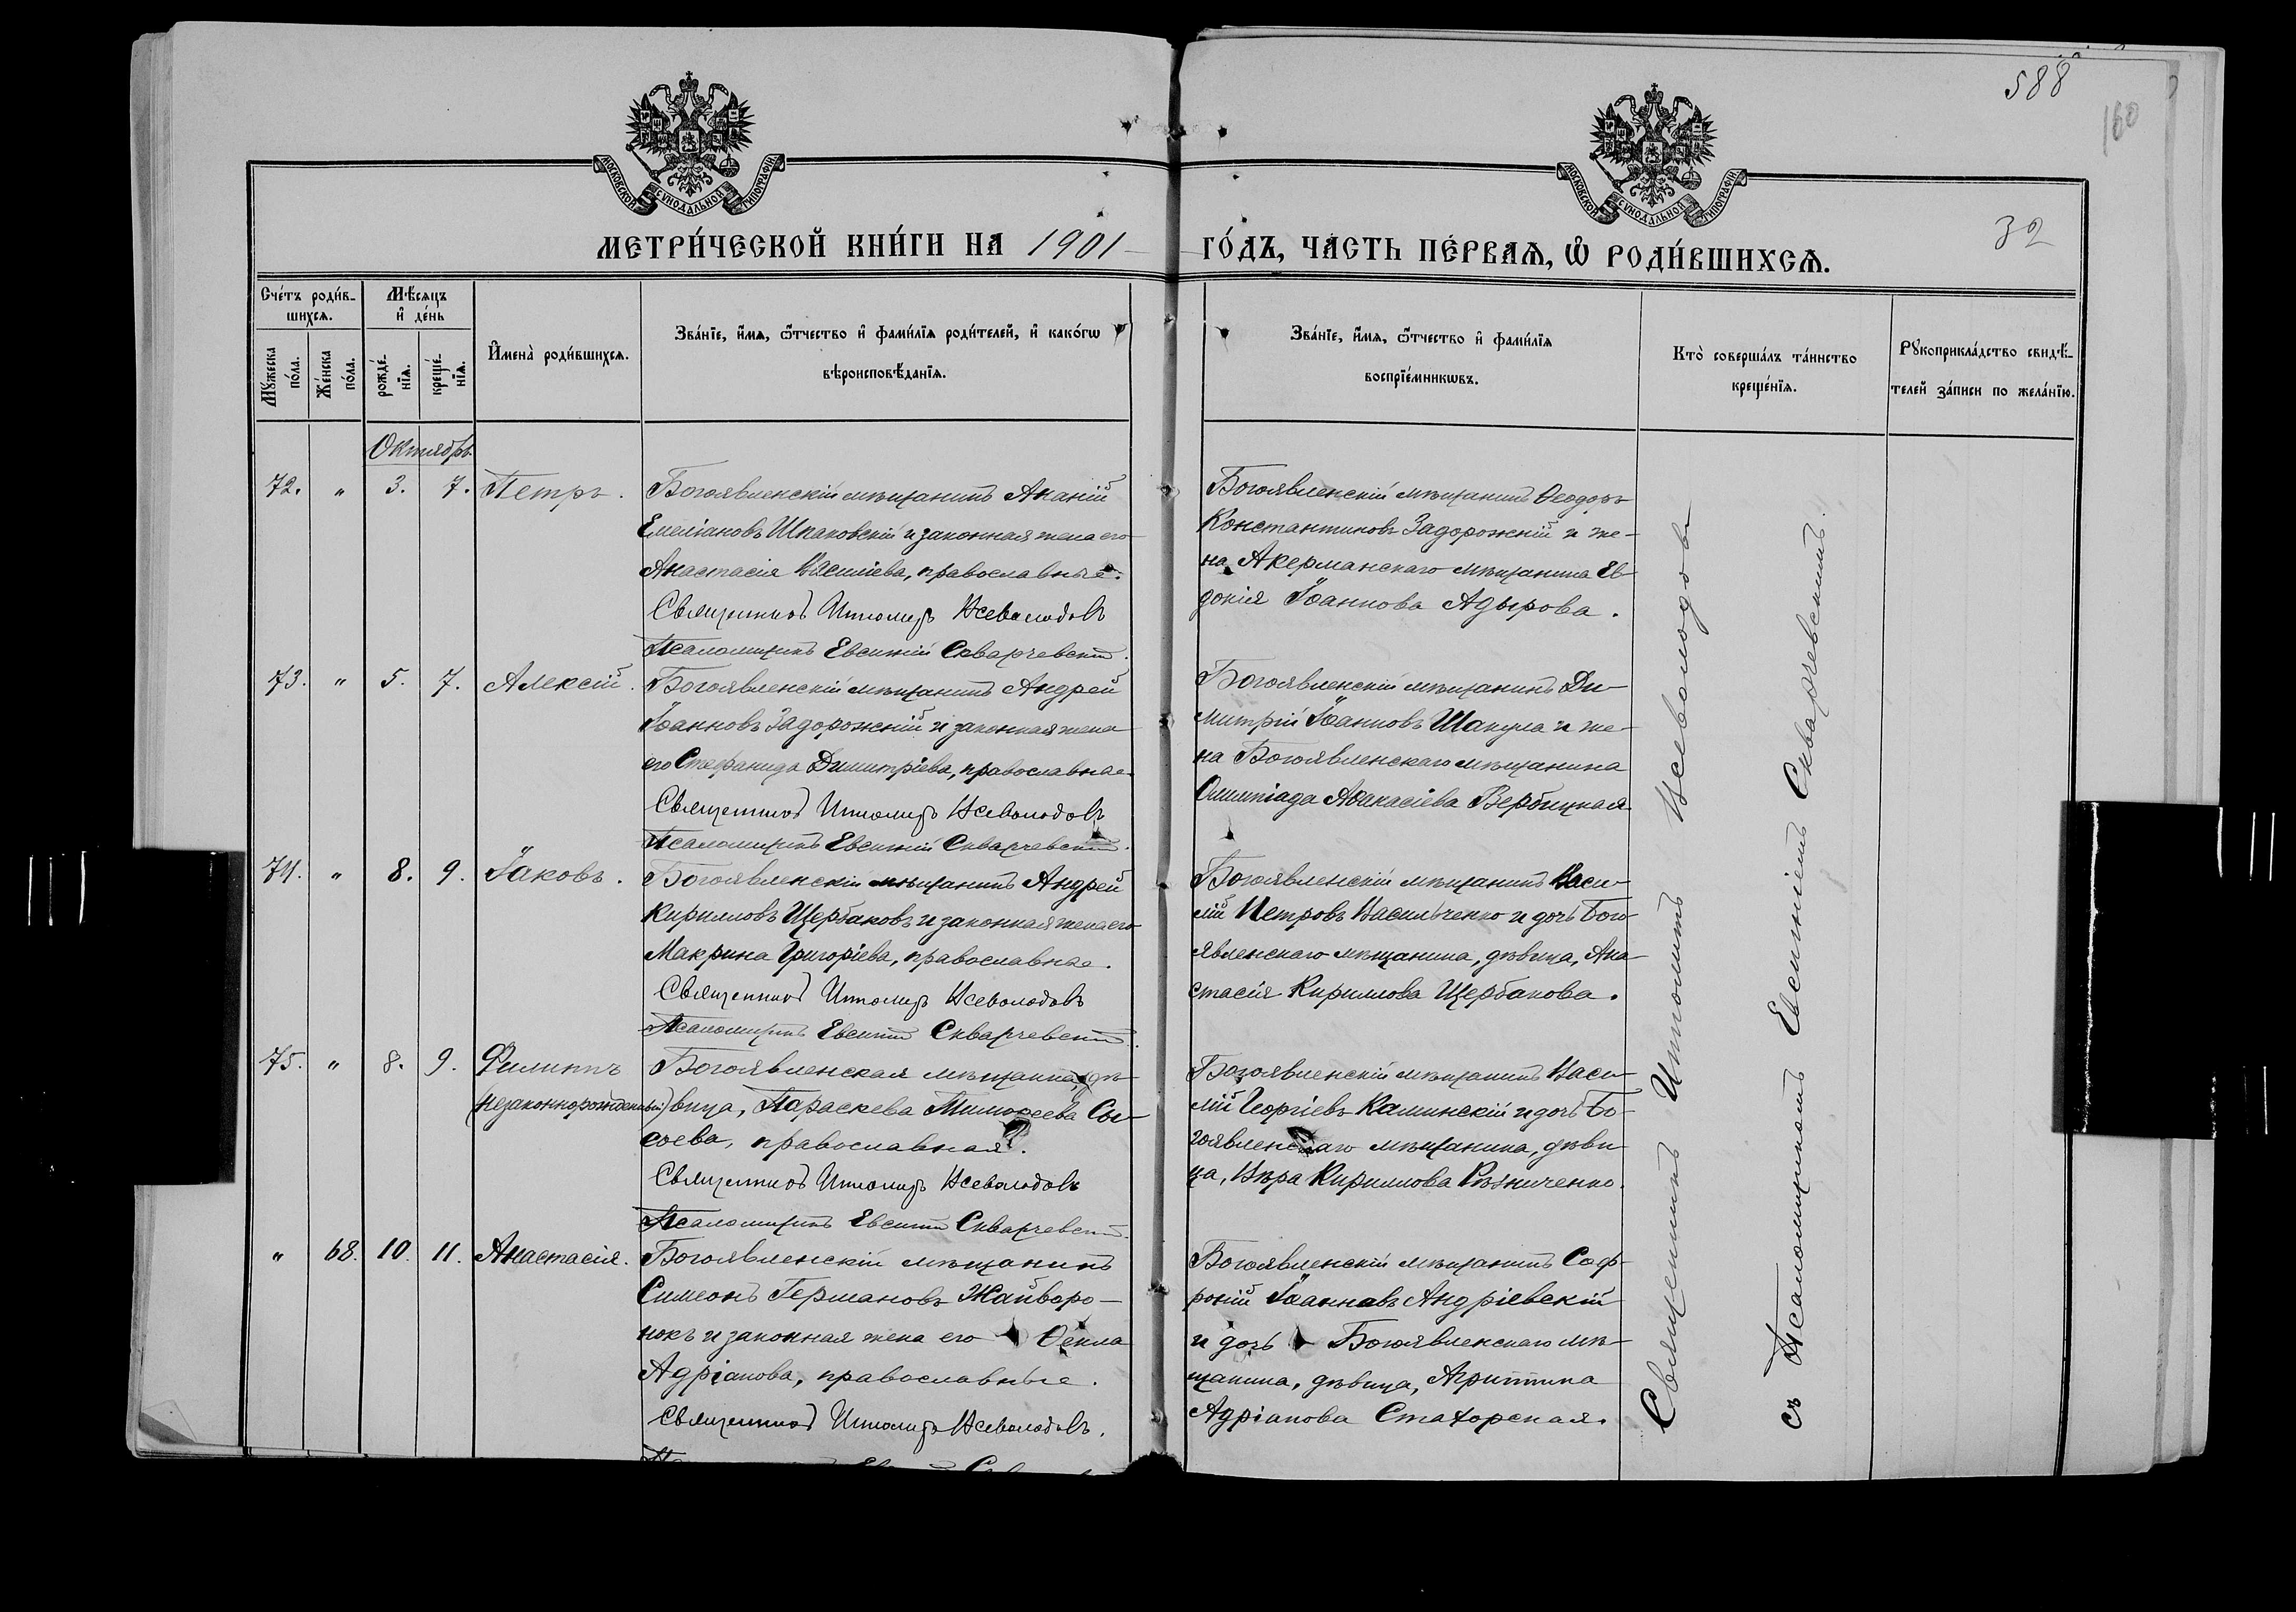 588
160
32
МОСКОВСКОЙ СѴНОДАЛЬНОЙ ТИПОГРАФІИ
МОСКОВСКОЙ СѴНОДАЛЬНОЙ ТИПОГРАФІИ
МЕТРИ́ЧЕСКОЙ КНИ́ГИ НА 1901 ГО́ДЪ, ЧА́СТЬ ПЕ́РВАѦ, Ѽ РОДИ́ВШИХСѦ.
Сче́тъ роди́в-
шихсѧ.
Мꙋ́жеска по́ла.
Же́нска по́ла.
Мѣ́сѧцъ
и҆ де́нь
рожде́-
нїѧ.
креще́-
нїѧ.
И҆мена̀ роди́вшихсѧ.
Зва́нїе, и҆́мѧ, ѻ҆́тчество и҆ фами́лїѧ роди́телей, и҆ како́гѡ
вѣроисповѣ́данїѧ.
Зва́нїе, и҆́мѧ, ѻ҆́тчество и҆ фами́лїѧ
воспрїе́мникѡвъ.
Кто̀ соверша́лъ та́инство
креще́нїѧ.
Рꙋкоприкла́дство свидѣ́-
телей за́писи по жела́нїю.
Октябрь
72. " 3. 7. Петръ.
Богоявленскій мѣщанинъ Ананій
Емеліановъ Шпаковскій и законная жена его
Анастасія Василіева, православные.
Священникъ Ипполитъ Всеволодовъ
Псаломщикъ Евсигній Скварчевскій.
Богоявленскій мѣщанинъ Ѳеодоръ
Константиновъ Задорожній и же-
на Акерманскаго мѣщанина Ев-
докія Іоаннова Адырова.
73. " 5. 7. Алексій.
Богоявленскій мѣщанинъ Андрей
Іоанновъ Задорожній и законная жена
его Стефанида Димитріева, православные.
Священникъ Ипполитъ Всеволодовъ
Псаломщикъ Евсигній Скварчевскій.
Богоявленскій мѣщанинъ Ди-
митрій Іоанновъ Шакула и же-
на Богоявленскаго мѣщанина
Олимпіада Аѳанасіева Вербицкая
74. " 8. 9. Іаковъ.
Богоявленскій мѣщанинъ Андрей
Кирилловъ Щербаковъ и законная жена его
Макрина Григоріева, православные.
Священникъ Ипполитъ Всеволодовъ
Псаломщикъ Евсигній Скварчевскій.
Богоявленскій мѣщанинъ Васи-
лій Петровъ Васильченко и дочь Бого-
явленскаго мѣщанина, дѣвица, Ана-
стасія Кириллова Щербакова.
75. " 8. 9. Филиппъ
(незаконнорожденный)
Богоявленская мѣщанка, дѣ-
вица, Параскева Тимоѳеева Сы-
соева, православная.
Священникъ Ипполитъ Всеволодовъ
Псаломщикъ Евсигній Скварчевскій.
Богоявленскій мѣщанинъ Васи-
лій Георгіевъ Калинскій и дочь Бо-
гоявленскаго мѣщанина, дѣви-
ца, Вѣра Кириллова Рѣзниченко.
" 68. 10. 11. Анастасія.
Богоявленскій мѣщанинъ
Симеонъ Германовъ Жайворо-
нокъ и законная жена его Ѳекла
Адріанова, православные.
Священникъ Ипполитъ Всеволодовъ.
Богоявленскій мѣщанинъ Соф-
роній Іоанновъ Андріевскій
и дочь Богоявленскаго мѣ-
щанина, дѣвица, Агриппина
Адріанова
Священникъ Ипполитъ Всеволодовъ
съ Псаломщикомъ Евсигніемъ Скварчевскимъ.